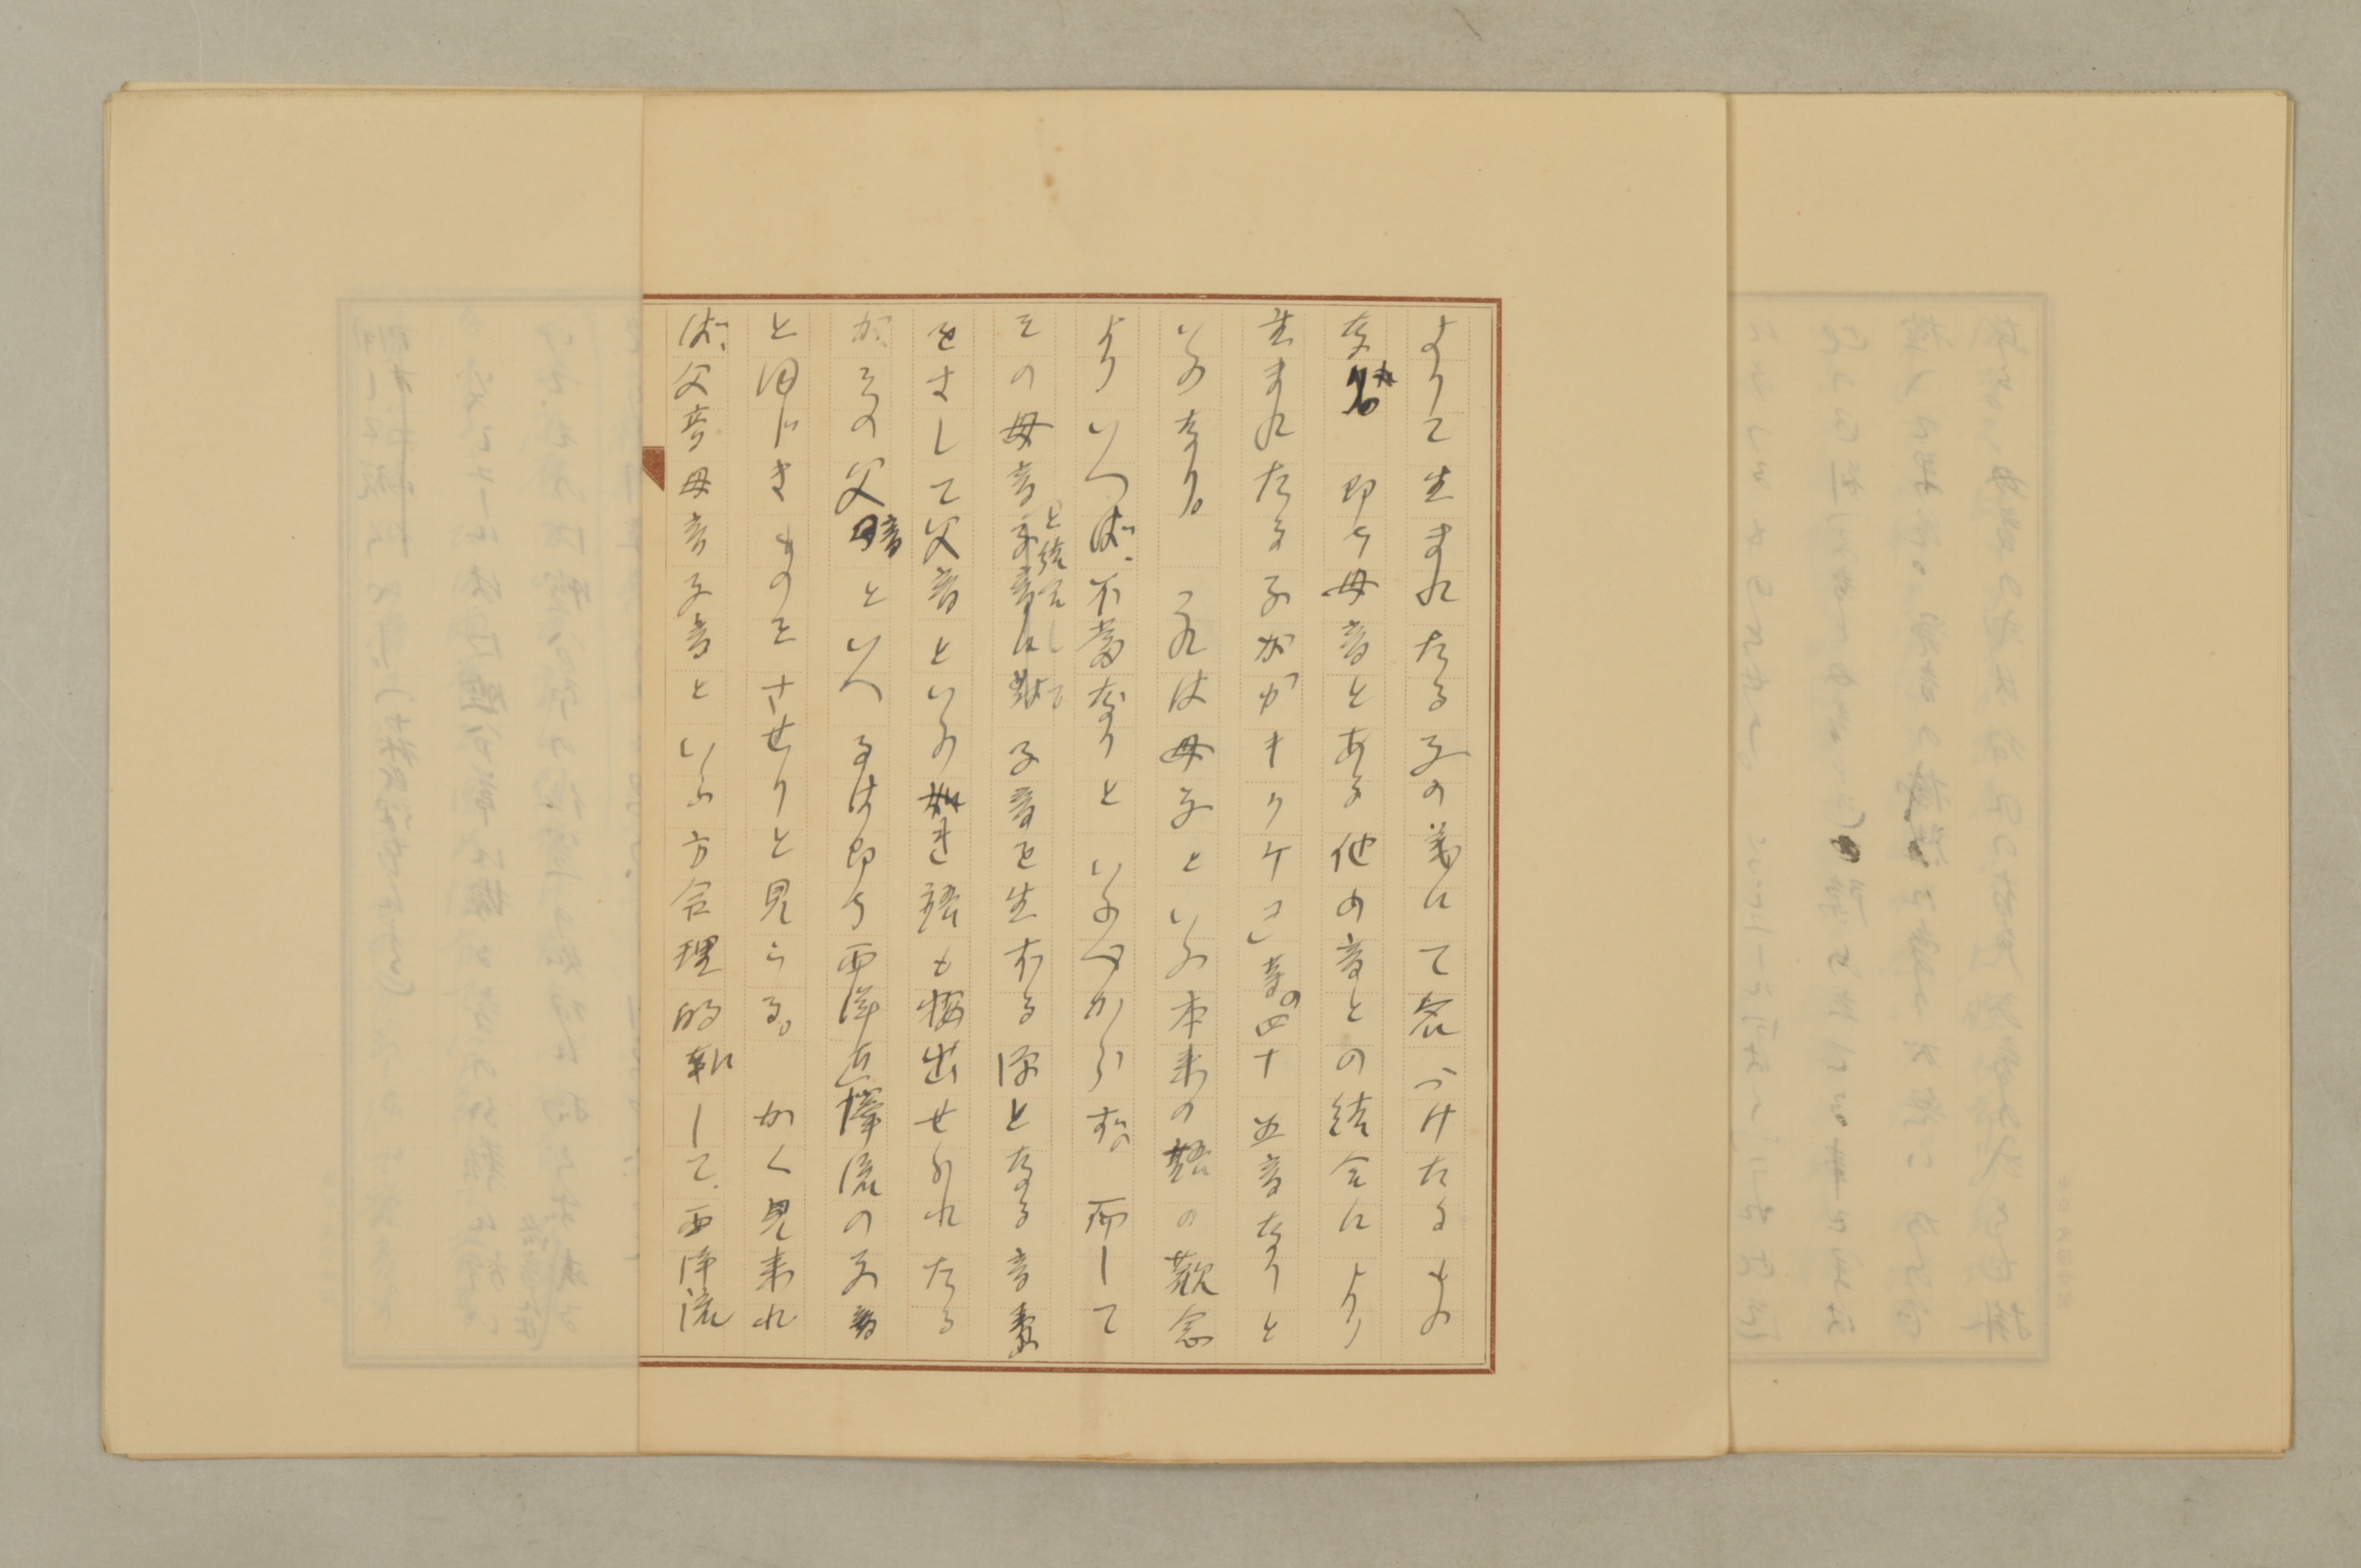 よりて生まれたる子の義にて名づけたるもの
なれ。即ち母音とある他の音との結合により
生まれたる子がガキクケコ等の四十五音なりと
いふなり。これは母子といふ本来の語の観念
よりいへば、不當なりといふべからず。而して
その母音と結合して子音を生ずる源となる音素
をさして父音といふ如き語も案出せられたる
が、その父音といへるは即ち西洋直譯流の子音
と同じきものをさせりと見らる。かく見来れ
ば、父音母音子音といふ方合理的にして、西洋流